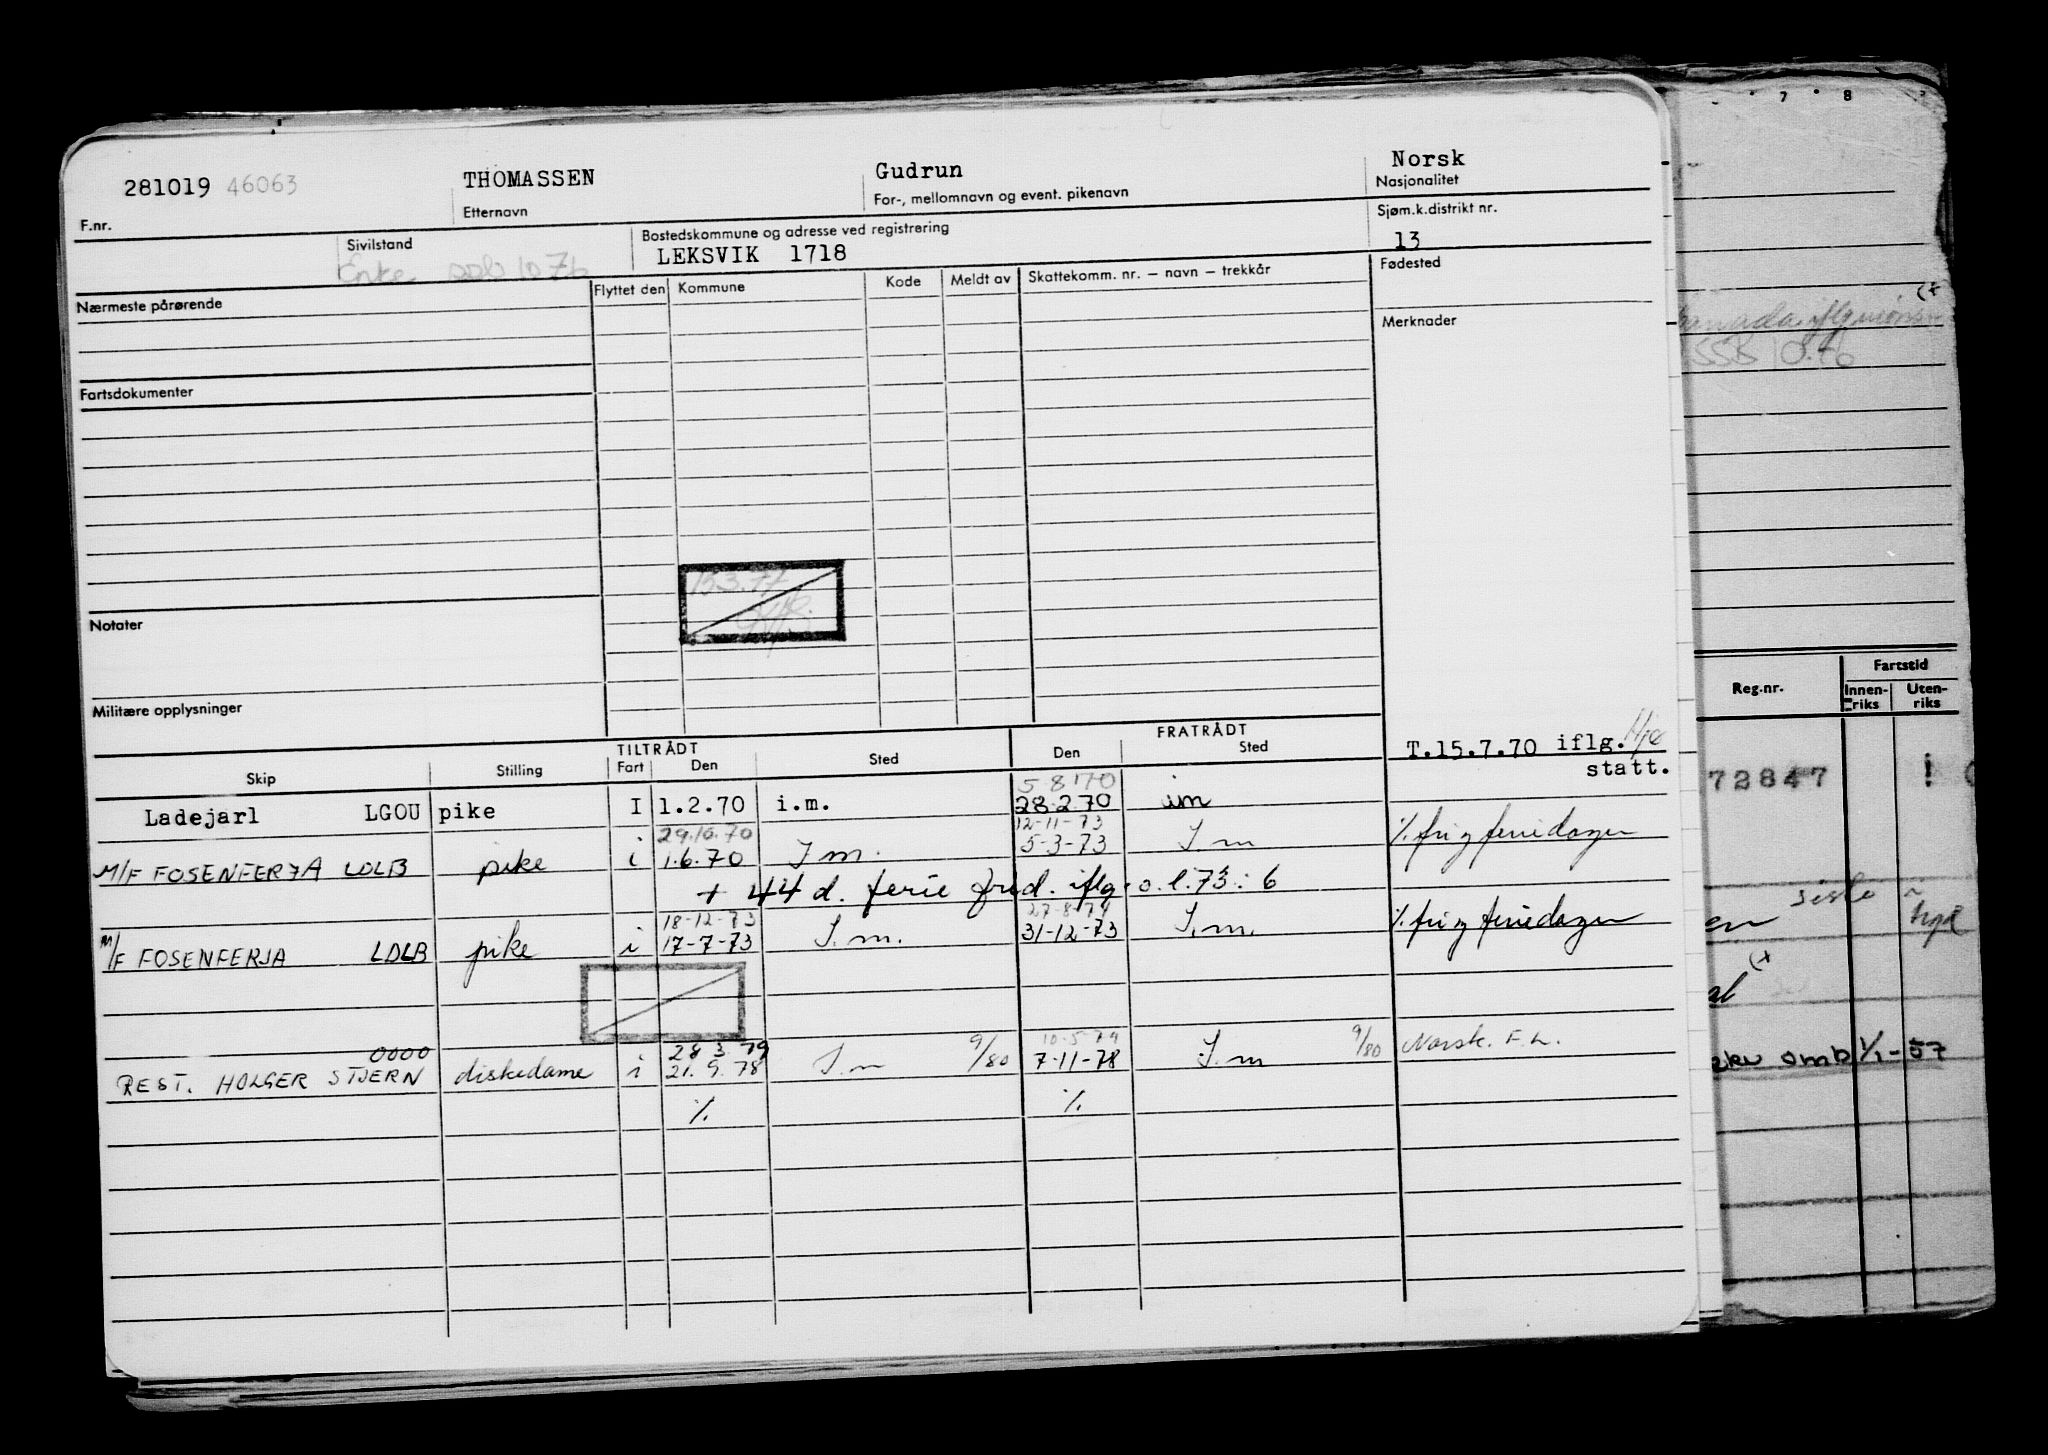 281019 46063 THOMASSEN Gudrun Norsk
F.nr. Etternavn For-, mellomnavn og event. pikenavn Nasjonalitet
Sivilstand Bostedskommune og adresse ved registrering Sjøm.k.distrikt nr.
Enke LEKSVIK 1718 13
Nærmeste pårørende Flyttet den Kommune Kode Meldt av Skattekomm. nr. — navn — trekkår Fødested
Merknader
Fartsdokumenter
15.3.77
Notater
Militære opplysninger
TILTRÅDT FRATRÅDT
Skip Stilling Fart Den Sted Den Sted
T.15.7.70 iflg.
statt.
5 8 70
Ladejarl LGOU pike I 1.2.70 i.m. 28.2.70 im
29.10.70 12-11-73
M/F FOSENFERJA LDLB pike i 1.6.70 I m. 5-3-73 I m % fri g feriedager
+ 44 d. ferie fred. iflg. o.l. 73: 6
18-12-73 27-8-74
M/F FOSENFERJA LDLB pike i 17-7-73 I.m. 31-12-73 I.m. % fri g feriedager
0000 28 3 79 9/80 10-5-79 9/80 Norsk. F.L.
REST. HOLGER STJERN diskedame i 21.9.78 I.m 7-11-78 I.m
% %
7 8
(+
iflg
SSB 10.76
Fartstid
Reg.nr. Innenriks Utenriks
72847
en
(+
al
smb 1/1-57